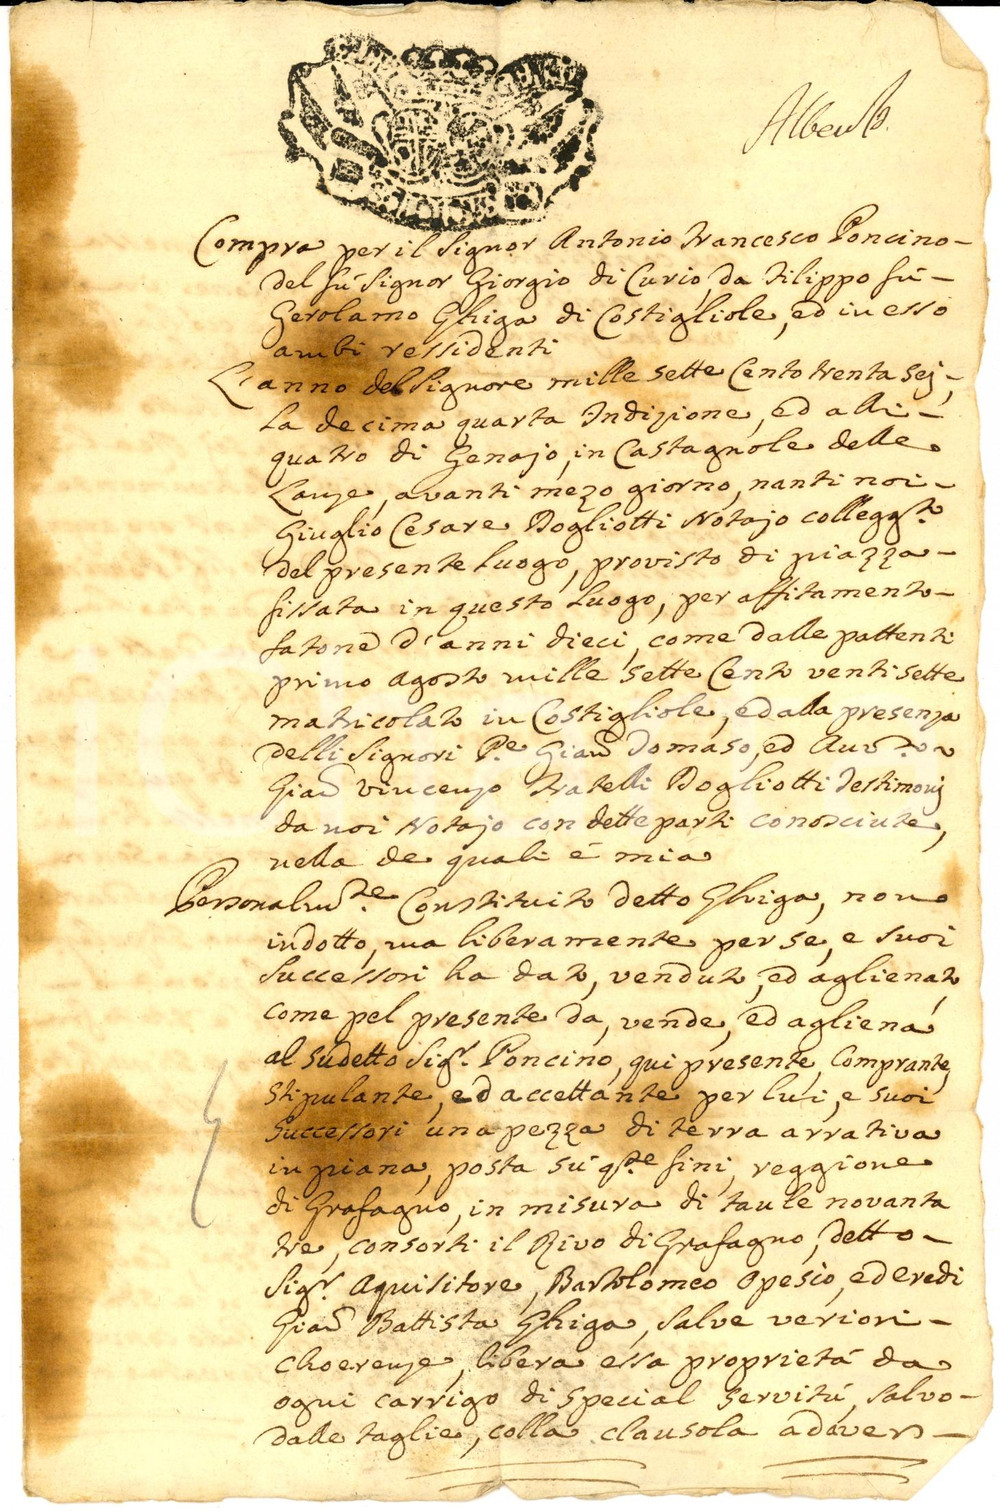 Compra per il Signor Antonio Francesco Poncino-
del fú Signor Giorgio di Curio, da Filippo fú-
Gerolamo Ghiga di Costigliole, ed in esso
ambi ressidenti
L'anno del Signore mille sette Cento trenta sej,
la decima quarta Indizione, ed alli-
quatro di Genajo, in Castagnole delle
Lanze, avanti mezo giorno, nanti noi-
Giuglio Cesare Dogliotti Notajo collegg.to
del presente Luogo, provisto di piazza-
fissata in questo Luogo, per affitamento-
fatone d'anni dieci, come dalle pattenti
primo Agosto mille sette Cento venti sette
matricolato in Costigliole, ed alla presenza
delli Signori Gian Tomaso, ed
Gian Vincenzo Fratelli Dogliotti Testimonij
da noi Notajo con dette parti conosciute,
nella de quali é mia
Personalm.te Constituito detto Ghiga, non
indotto, ma liberamente per se, e suoi
Successori ha dato, venduto, ed aglienato
come pel presente da, vende, ed agliena
al sudetto Sig.r Poncino, qui presente, Comprante,
stipulante, ed accettante per lui, e suoi
Successori una pezza di terra arrativa
in piana, posta sú q.te fini, reggione
di Grafagno, in misura di taule novanta
tre, consorti il Rivo di Grafagno, detto-
Sig.r Aquisitore, Bartolomeo Opesio, ed eredi
Gian Battista Ghiga, salve veriori-
choerenze, libera essa proprietá da
ogni carrigo di special servitú, salvo-
dalle taglie, colla clausola